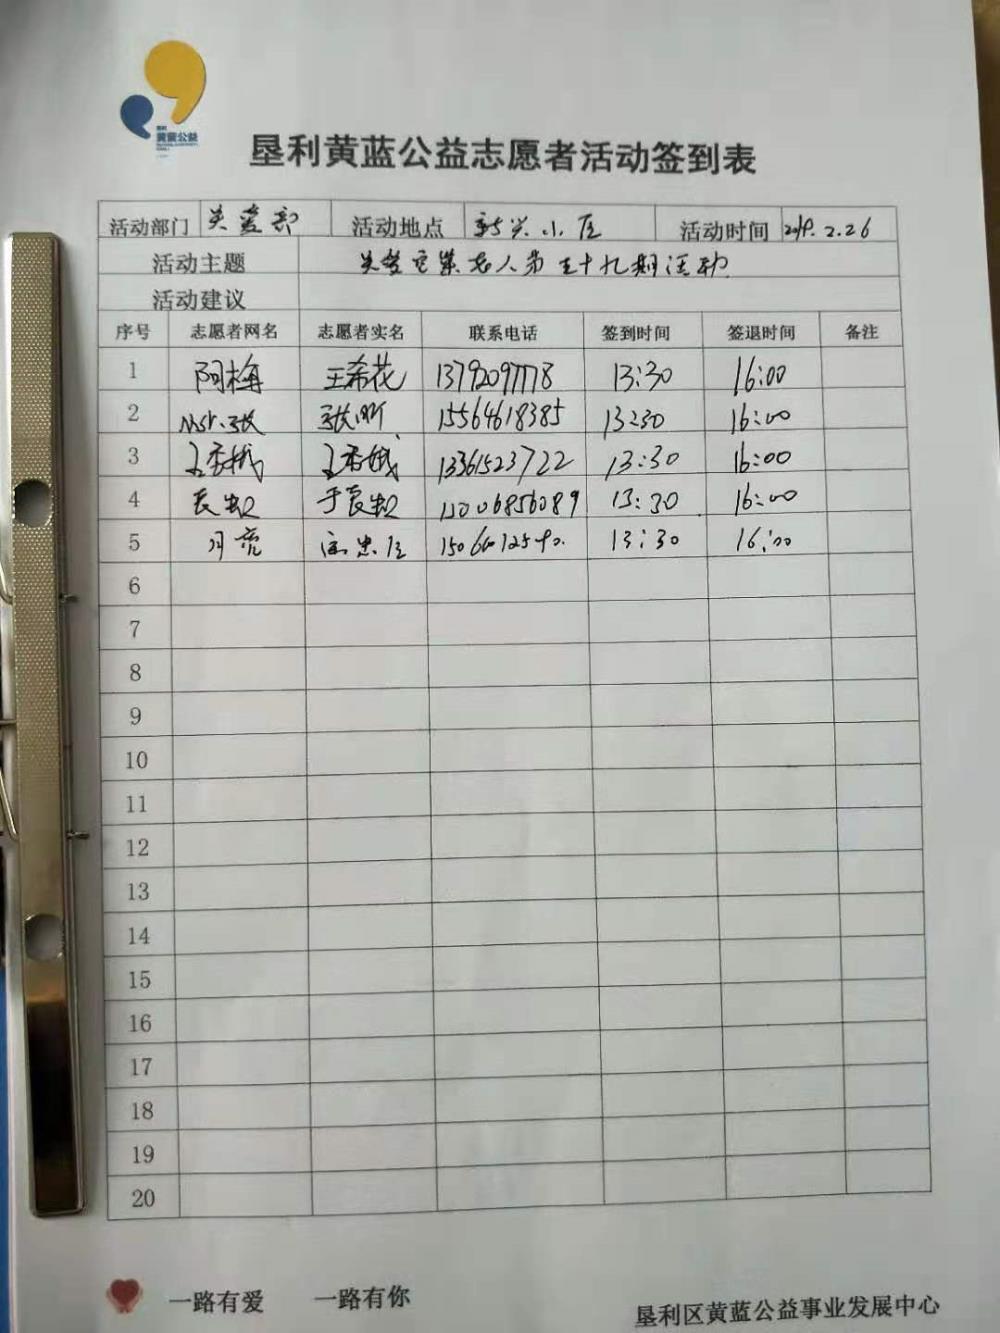 黄蓝公益
垦利黄蓝公益志愿者活动签到表
活动部门 关爱部 活动地点 新兴小区 活动时间 2019.2.26
活动主题 关爱空巢老人第五十九期活动
活动建议
序号 志愿者网名 志愿者实名 联系电话 签到时间 签退时间 备注
1 阿梅 王希花 13:30 16:00
2 张昕 15564618385 13:30 16:00
3 王秀娥 王秀娥 13361523722 13:30 16:00
4 13:30 16:00
5 月亮 13:30 16:00
6
7
8
9
10
11
12
13
14
15
16
17
18
19
20
一路有爱 一路有你
垦利区黄蓝公益事业发展中心